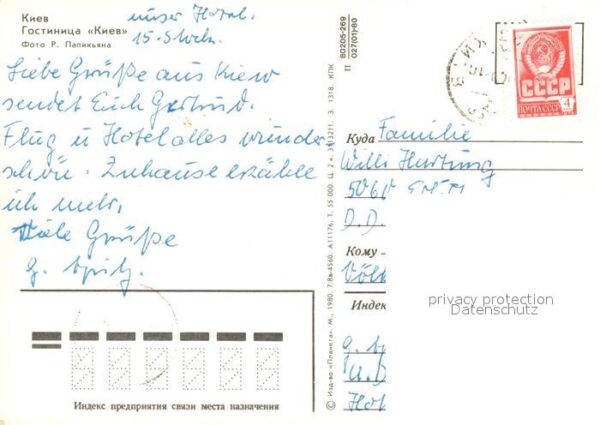 Киев
Гостиница «Киев»
Фото Р. Папикьяна
unser Hotel.
15. Stock.
Liebe Grüße aus Kiew
sendet Euch Gertrud.
Flug u Hotel alles wunder
schön. Zuhause erzähle
ich mehr,
Viele Grüße
G.
80205-269
027(01)-80
П
© Изд-во «Планета». М., 1980. 7.8в-4560. А11176. Т. 55 000. Ц. 2 к. З. 1318. КПК
СССР
ПОЧТА СССР
4
Куда
Familie
Willi Hartung
D.D.
Кому
Индекс
privacy protection
Datenschutz
Индекс предприятия связи места назначения